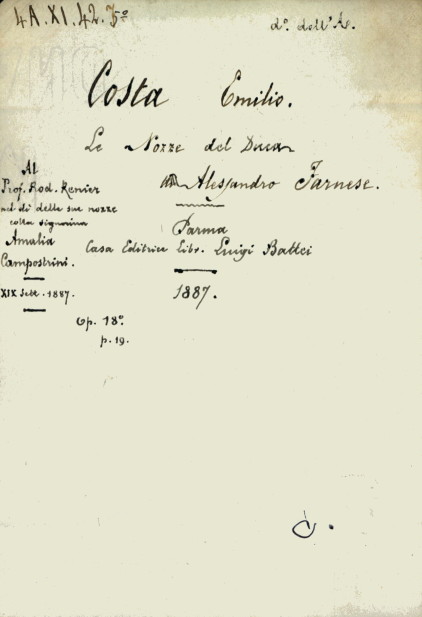 4A.XI.42.5º
dº. dell'A.
Costa Emilio.
Le Nozze del Duca
Alessandro Farnese.
Parma
Casa Editrice Libr. Luigi Battei
1887.
Al
Prof. Rod. Renier
nel dì delle sue nozze
colla signorina
Amalia
Campostrini.
XIX Sett. 1887.
Op. 18º.
p. 19.